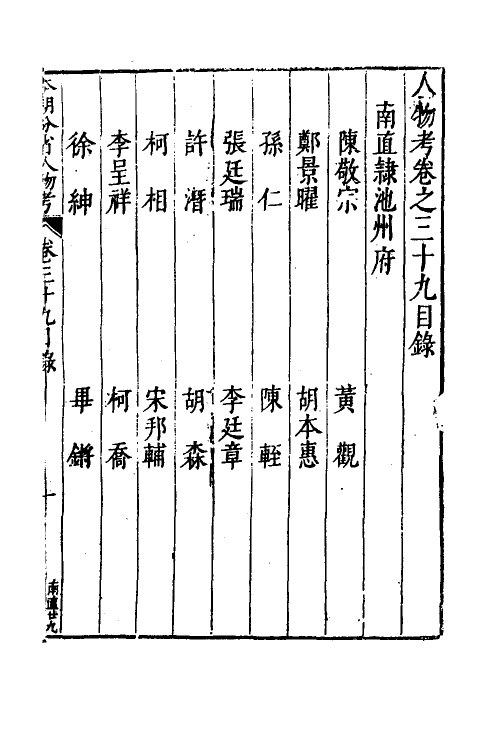 人物考卷之三十九目錄
南直隸池州府
陳敬宗 黃觀
鄭景曜 胡本惠
孫仁 陳輊
張廷瑞 李廷章
許潛 胡森
柯相 宋邦輔
李呈祥 柯喬
徐紳 畢鏘
本朝分省人物考 卷三十九目錄 一 南直廿九